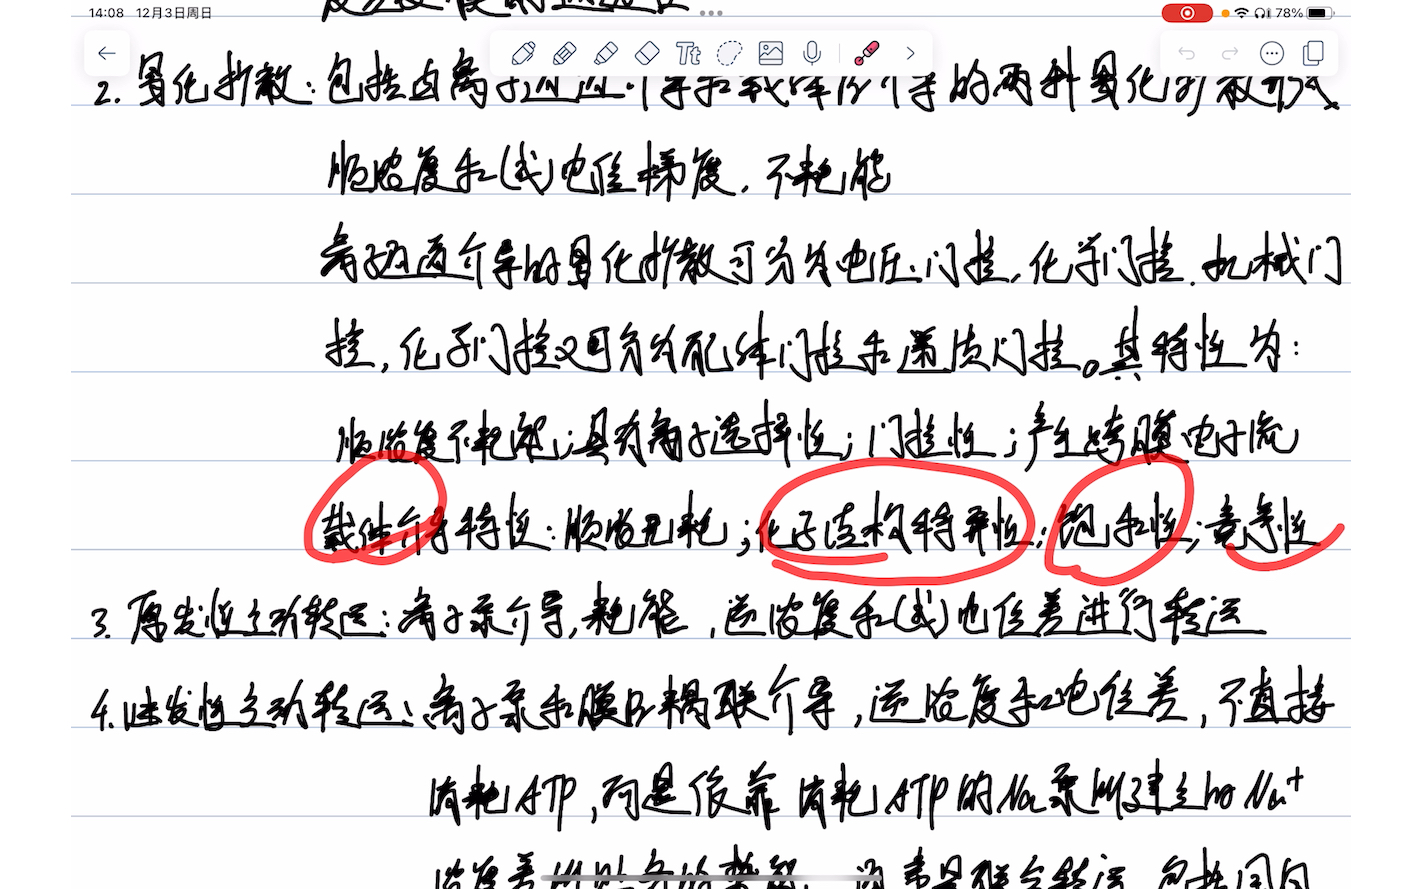 14:08 12月3日周日
78%
Tt
2. 易化扩散：包括由离子通道介导和载体介导的两种易化扩散形式
顺浓度和(或)电位梯度，不耗能
离子通道介导的易化扩散可分为电压门控，化学门控，机械门
控，化学门控又可分为配体门控和递质门控。其特性为：
顺浓度不耗能；具有离子选择性；门控性；产生跨膜电子流
载体介导特性：顺浓无耗；化学结构特异性；饱和性；竞争性
3. 原发性主动转运：离子泵介导，耗能，逆浓度和(或)电位差进行转运
4. 继发性主动转运：离子泵和膜内耦联介导，逆浓度和电位差，不直接
消耗ATP，而是依靠消耗ATP的Na泵所建立的Na⁺